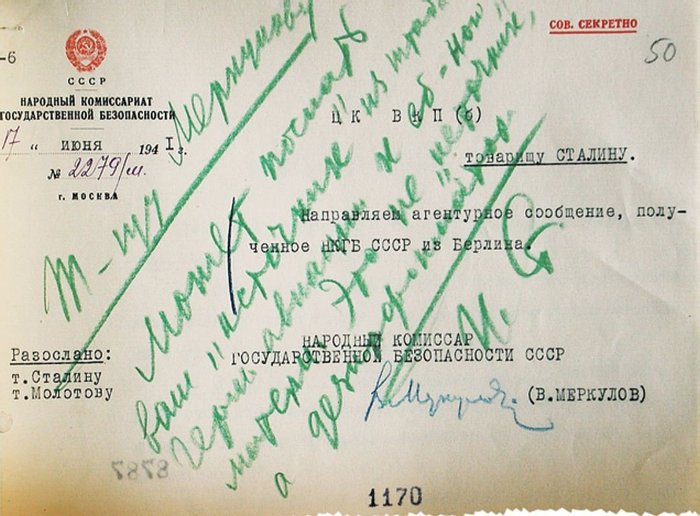 -6
СОВ. СЕКРЕТНО
50
СССР
НАРОДНЫЙ КОМИССАРИАТ
ГОСУДАРСТВЕННОЙ БЕЗОПАСНОСТИ
17 " июня 1941 г.
№ 2279/м
г. МОСКВА
ЦК ВКП(б)
товарищу СТАЛИНУ.
Направляем агентурное сообщение, полу-
ченное НКГБ СССР из Берлина.
НАРОДНЫЙ КОМИССАР
ГОСУДАРСТВЕННОЙ БЕЗОПАСНОСТИ СССР
(В.МЕРКУЛОВ)
Разослано:
т.Сталину
т.Молотову
Т-щу Меркулову
Может послать
ваш "источник" из штаба
герм. авиации к еб-ной
матери. Это не "источник",
а дезинформатор.
И. Ст
1170